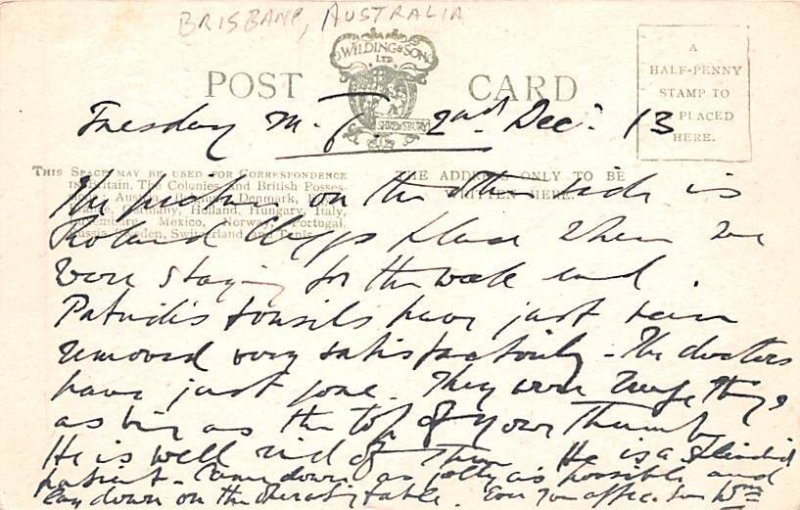 BRISBANE, AUSTRALIA
WILDING & SON
LTD.
SHREWSBURY
POST CARD
A
HALF-PENNY
STAMP TO
PLACED
HERE.
Tuesday 2nd Dec. 13
THIS SPACE MAY BE USED FOR CORRESPONDENCE
THE ADDRESS ONLY TO BE
WRITTEN HERE.
in Britain, The Colonies, and British Posses-
Denmark,
Germany, Holland, Hungary, Italy,
Mexico, Norway, Portugal,
Sweden, Switzerland and
The picture on the other side is
Roland place where we
were staying for the week end.
Patricks tonsils have just been
removed very satisfactorily - The doctors
have just gone. They were huge things
as big as the top of your thumb
He is well rid of them. He is a splendid
patient - came down as jolly as possible and
lay down on the operating table. Ever your affec. son Wm